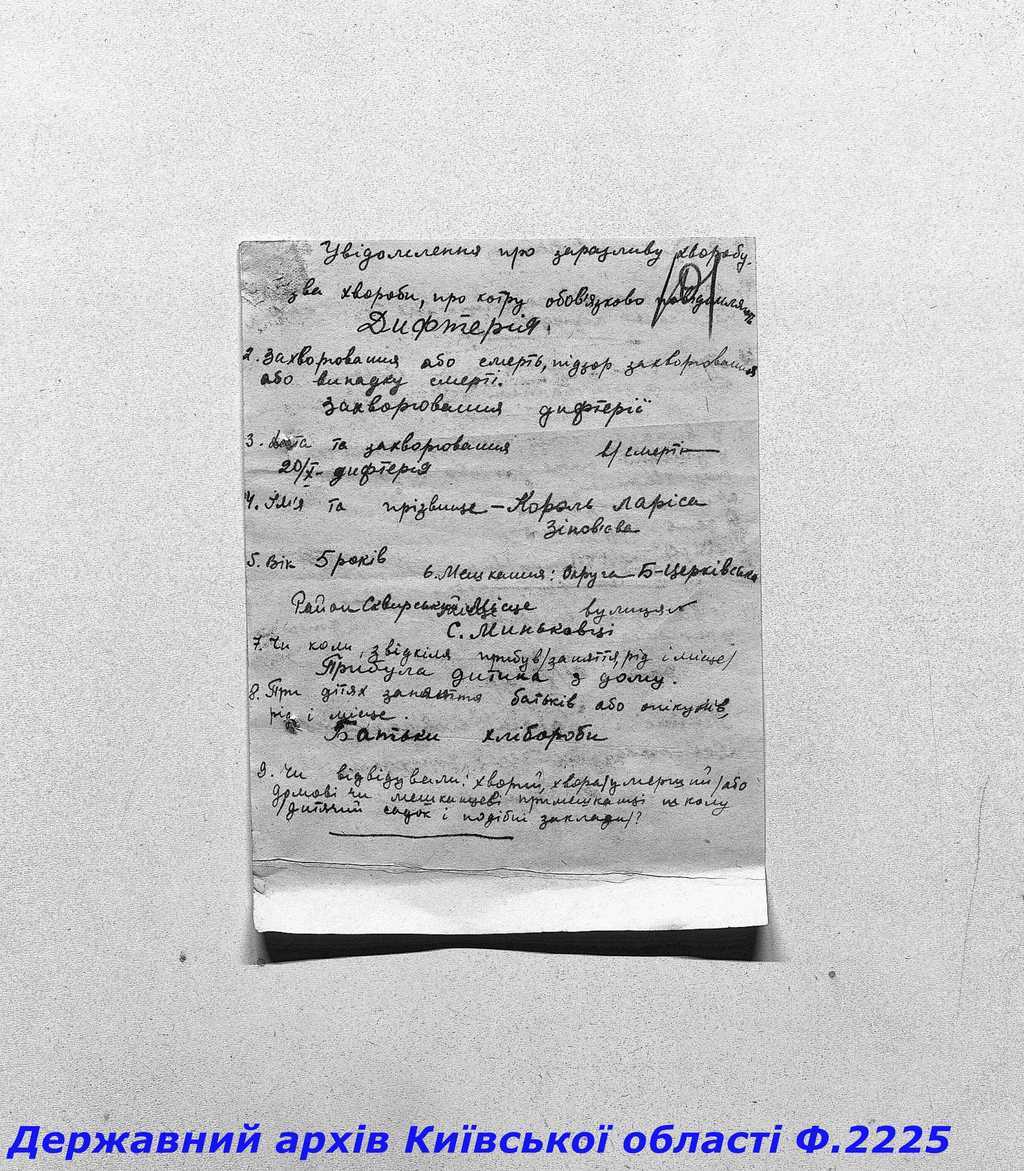 Увідомлення про заразливу хворобу.
зва хвороби, про котру обов'язково повідомляють
Дифтерія.
2. Захворювання або смерть, підзор захворювання
або випадку смерті.
Захворювання дифтерії
3. Дата та захворювання в/ смерти —
20/X- дифтерія
4. Ім'я та прізвище – Король Лариса
Зінов'єва
5. Вік 5 років 6. Мешкання: Округа Б-Церківська
Район Сквирський Місце вулиця
С. Миньковці
7. Чи коли, звідкіля прибув /заняття, рід і місце/
Прибула дитина з дому.
8. При дітях заняття батьків або опікунів,
рід і місце.
Батьки хлібороби
9. Чи відвідували: хворий, хвора /умерший/ або
домові чи мешканцеві примешканці школу
/дитячий садок і подібні заклади/?
Державний архів Київської області Ф.2225